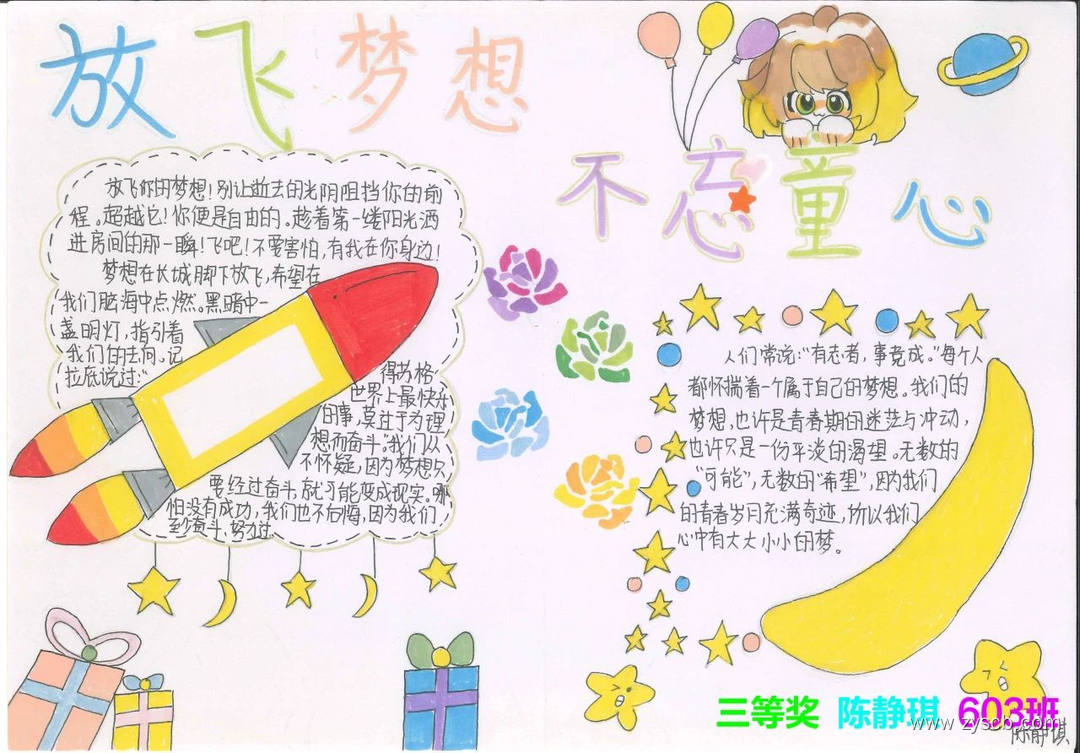 放飞梦想
不忘童心
放飞你的梦想!别让逝去的光阴阻挡你的前
程。超越它!你便是自由的。趁着第一缕阳光洒
进房间的那一瞬!飞吧!不要害怕,有我在你身边!
梦想在长城脚下放飞,希望在
我们脑海中点燃。黑暗中一
盏明灯,指引着
我们的去向。记
拉底说过:"
得苏格
世界上最快
的事,莫过于为理
想而奋斗"我们从
不怀疑,因为梦想只
要经过奋斗就可能变成现实。哪
怕没有成功,我们也不后悔,因为我们
至少奋斗、努力过
人们常说:"有志者,事竟成。"每个人
都怀揣着一个属于自己的梦想。我们的
梦想,也许是青春期的迷茫与冲动,
也许只是一份平淡的渴望。无数的
"可能",无数的"希望",因为我们
的青春岁月充满奇迹,所以我们
心中有大大小小的梦。
三等奖 陈静琪 603班
www.zyscb.com
陈静琪